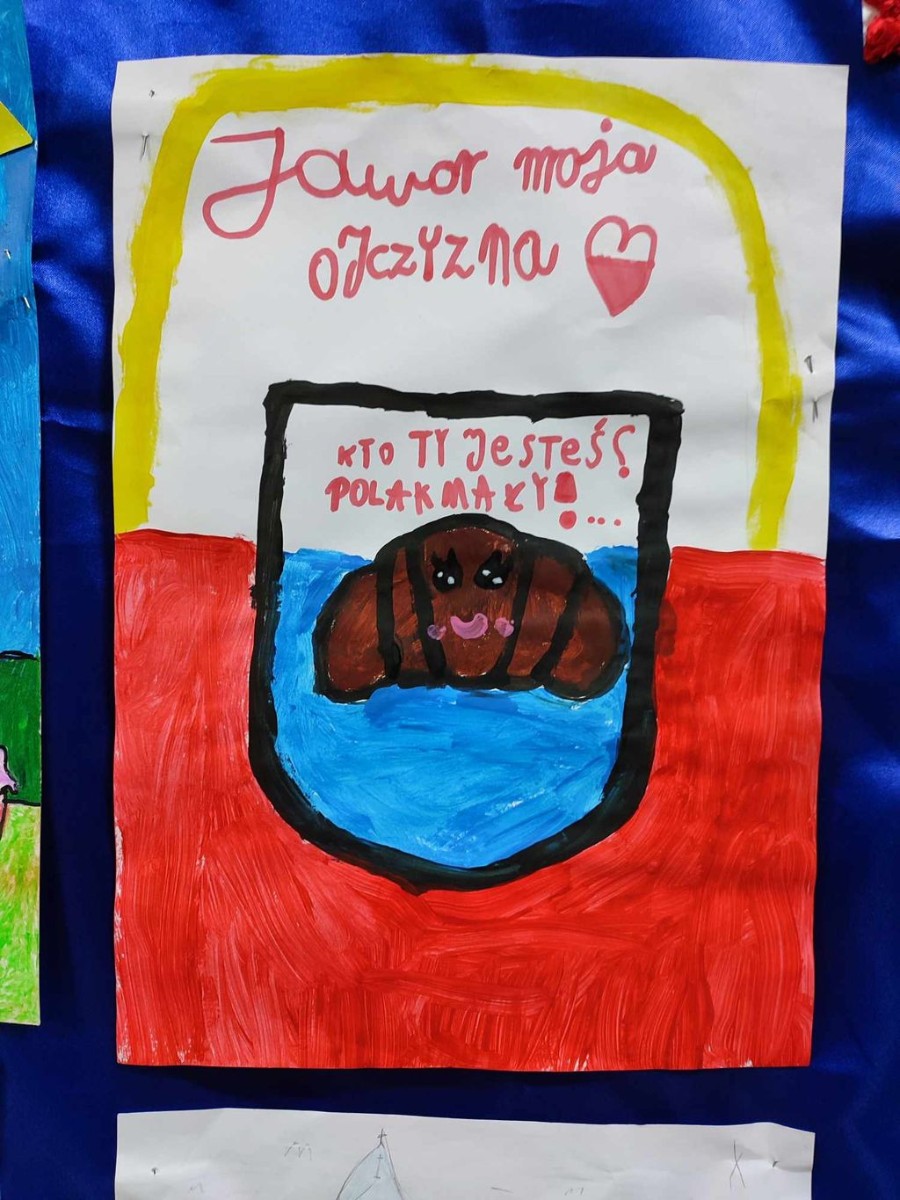 Jawor moja
OJCZYZNA
KTO TY JESTEŚ?
POLAK MAŁY!...